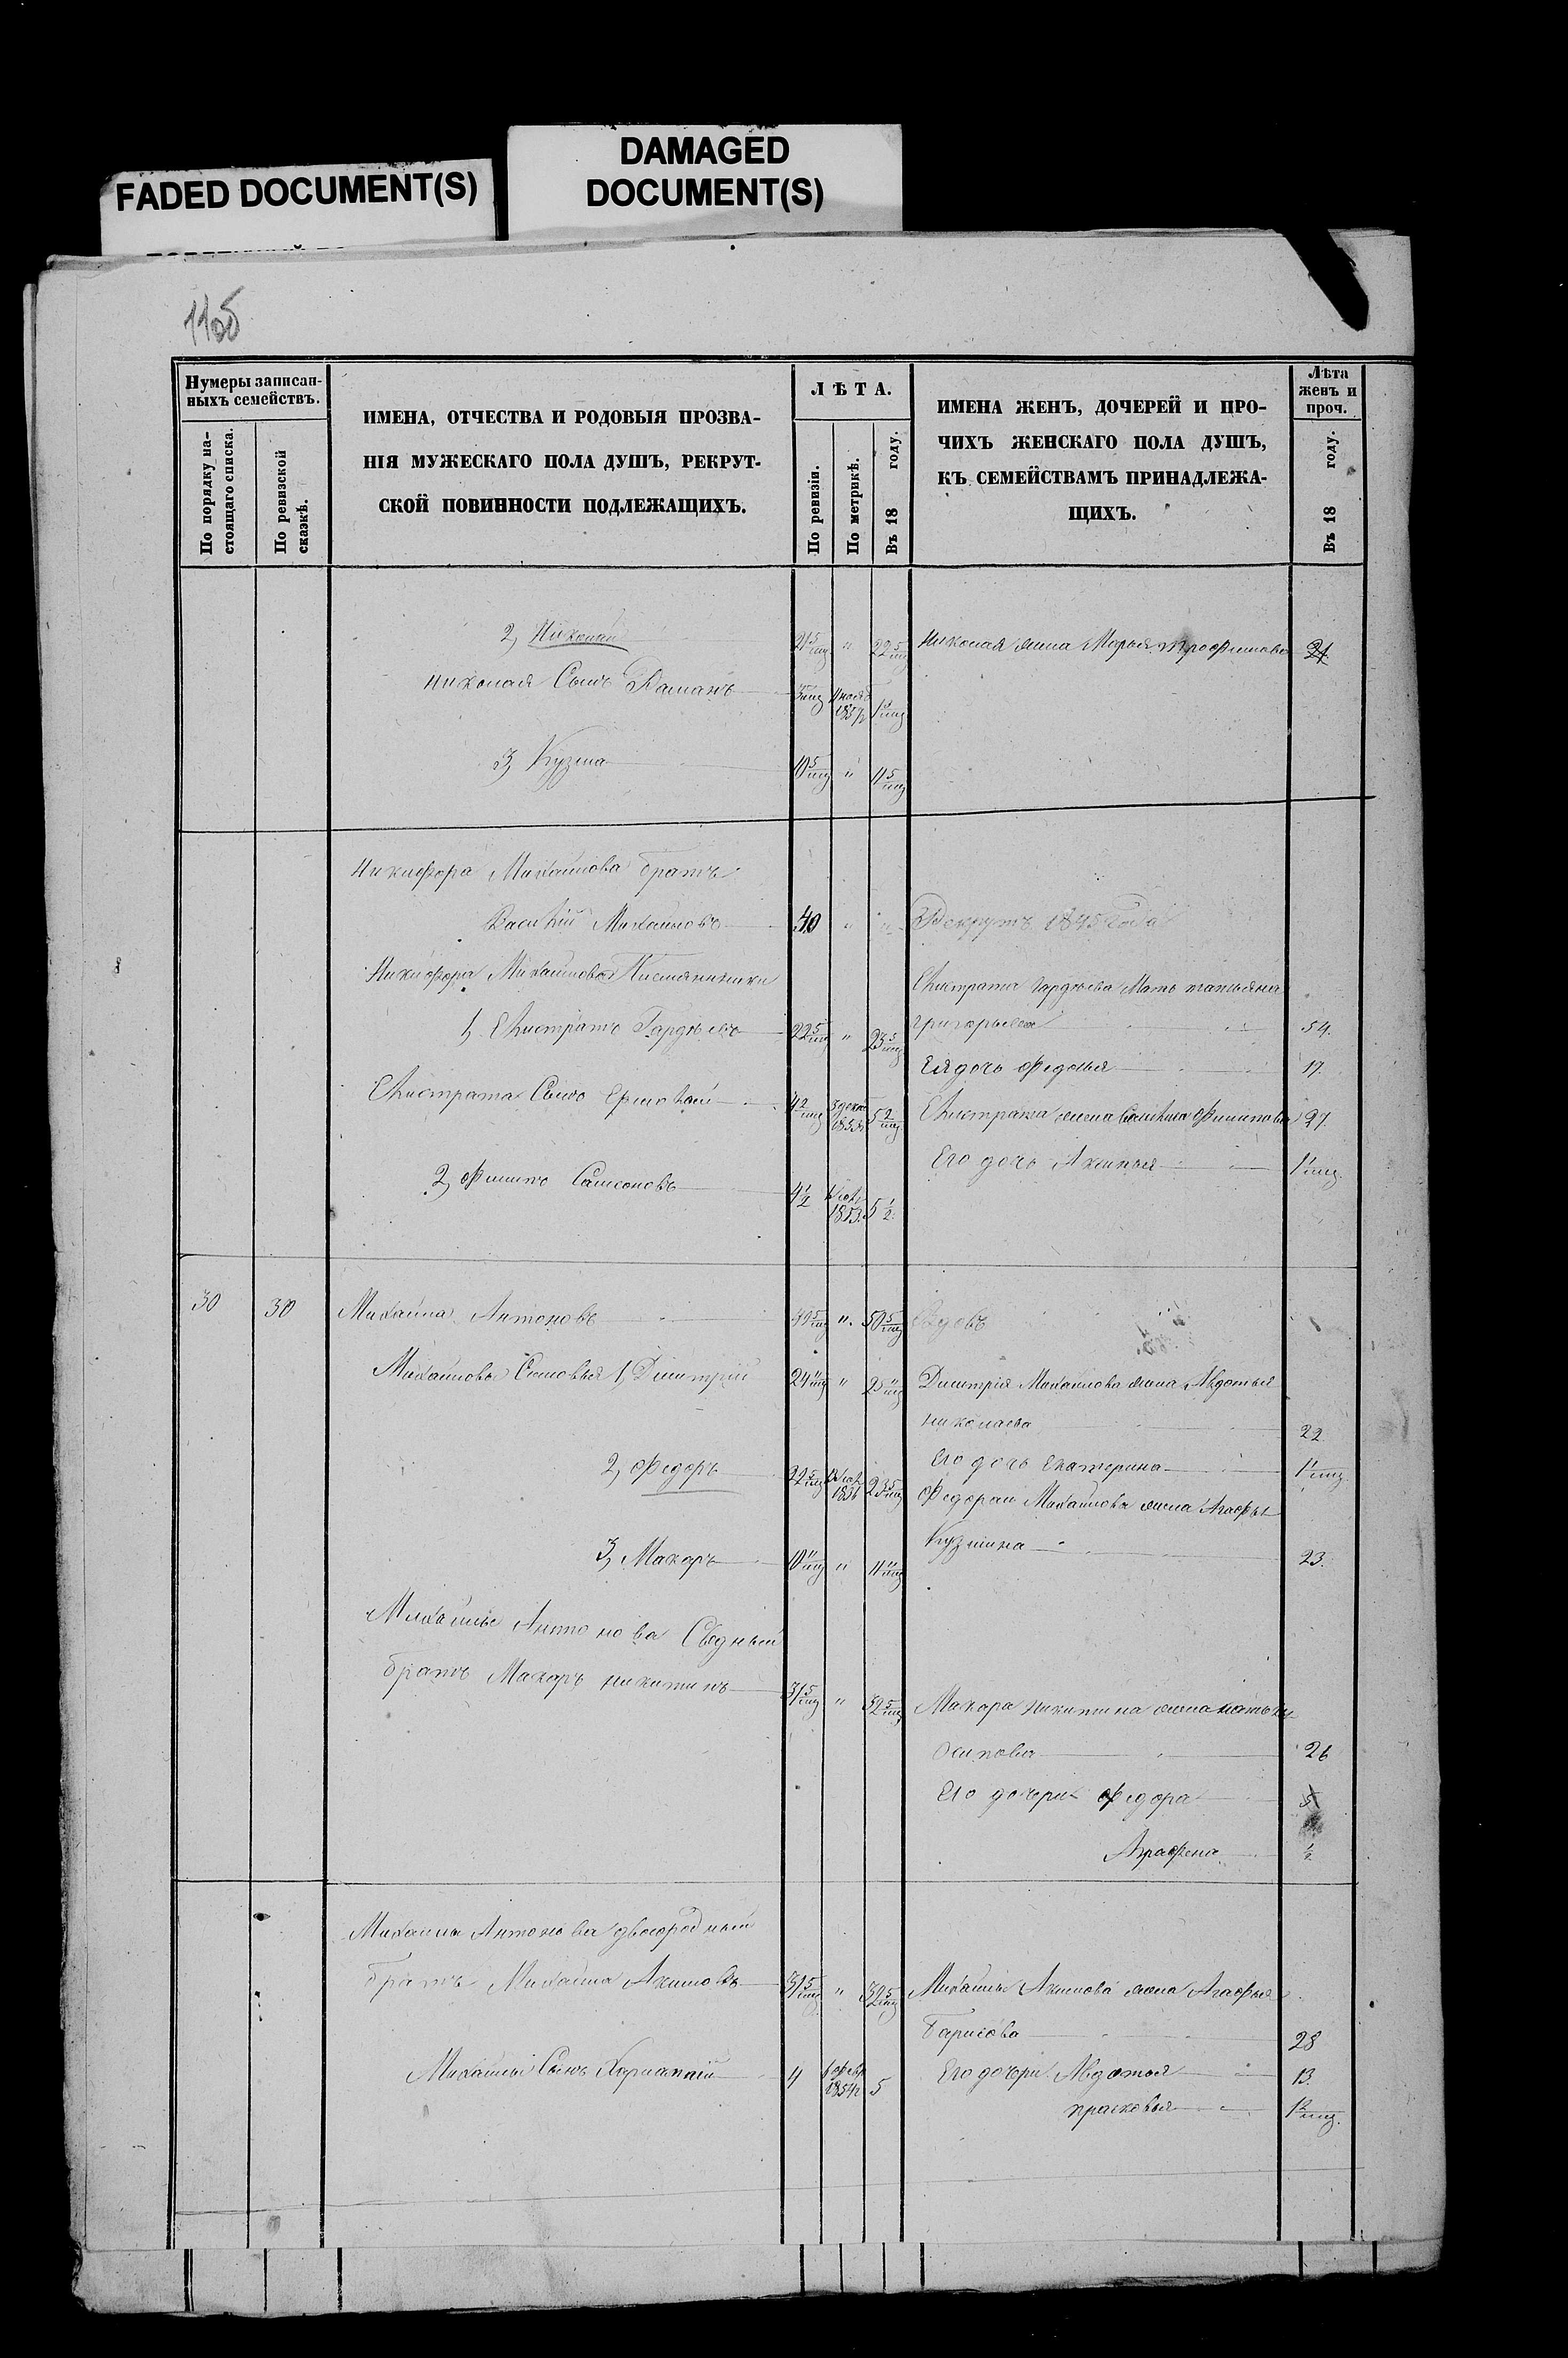 FADED DOCUMENT(S)
DAMAGED
DOCUMENT(S)
Нумеры записан-
ныхъ семействъ.
По порядку на-
стоящаго списка.
По ревизской
сказкѣ.
ИМЕНА, ОТЧЕСТВА И РОДОВЫЯ ПРОЗВА-
НІЯ МУЖЕСКАГО ПОЛА ДУШЪ, РЕКРУТ-
СКОЙ ПОВИННОСТИ ПОДЛЕЖАЩИХЪ.
ЛѢТА.
По ревизіи.
По метрикѣ.
Въ 18 году.
ИМЕНА ЖЕНЪ, ДОЧЕРЕЙ И ПРО-
ЧИХЪ ЖЕНСКАГО ПОЛА ДУШЪ,
КЪ СЕМЕЙСТВАМЪ ПРИНАДЛЕЖА-
ЩИХЪ.
Лѣта
женъ и
проч.
Въ 18 году.
2, Николай 21 5/мц " 22 5/мц Николая жена Марья Трофимова 21
Николая Сынъ 1857 1
3, Кузма 10 5/мц " 11 5/мц
Никифора Михайлова братъ
Василій Михайловъ 40 " " Рекрутъ 1845 года
Никифора Михайлова Племянники
Елистрата Гордѣева Мать татьяна
1, Елистратъ Гордѣевъ 22 5/мц " 23 5/мц григорьева 54.
Ея дочь Федосья 17.
Елистрата Сынъ Ермолай 4 2/мц 1853 5 2/мц Елистрата жена Филипова 27.
Его дочь Акинья 1
2, Филипъ Самсоновъ 4 1/2 1853. 5 1/2.
30 30 Михайла Антоновъ 49 5/мц " 50 5/мц Вдовъ
Михайловы Сыновья 1, Димитрій 24 11/мц " 25 11/мц Димитрія Михайлова жена Авдотья
николаева 22
Его дочь Екатерина 1
2, Федоръ 22 5/мц 1836 23 5/мц Федора Михайлова жена Агафья
Кузмина 23.
3, Макаръ 10 11/мц " 11 11/мц
Михайлы Антонова Сведный
братъ Макаръ никитинъ 31 5/мц " 32 5/мц Макара Никитина жена
Осипова 26
Его дочери Федора 5
Аграфена 1/2
Михайлы Антонова двоюродный
братъ Михайла Акимовъ 31 5/мц " 32 5/мц Михайлы Акимова жена Агафья
Барисова 28
Михайлы Сынъ Харлампій 4 февр 1854 5 Его дочери Авдотья 13.
прасковья 1 2/мц.